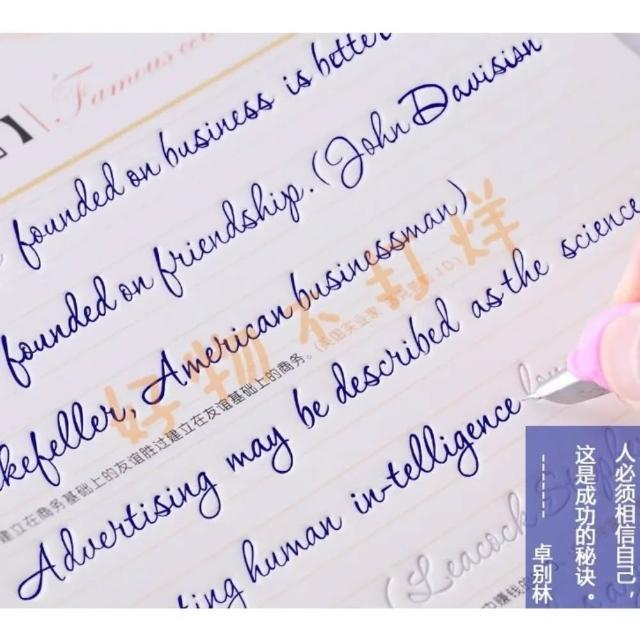 Famous
founded on business is better
founded on friendship. (John Davisisn
kefeller, American businessman)
建立在商务基础上的友谊胜过建立在友谊基础上的商务。
Advertising may be described as the science
ting human in-telligence
(Leacock
好物不打烊
人必须相信自己，
这是成功的秘诀。
------- 卓别林